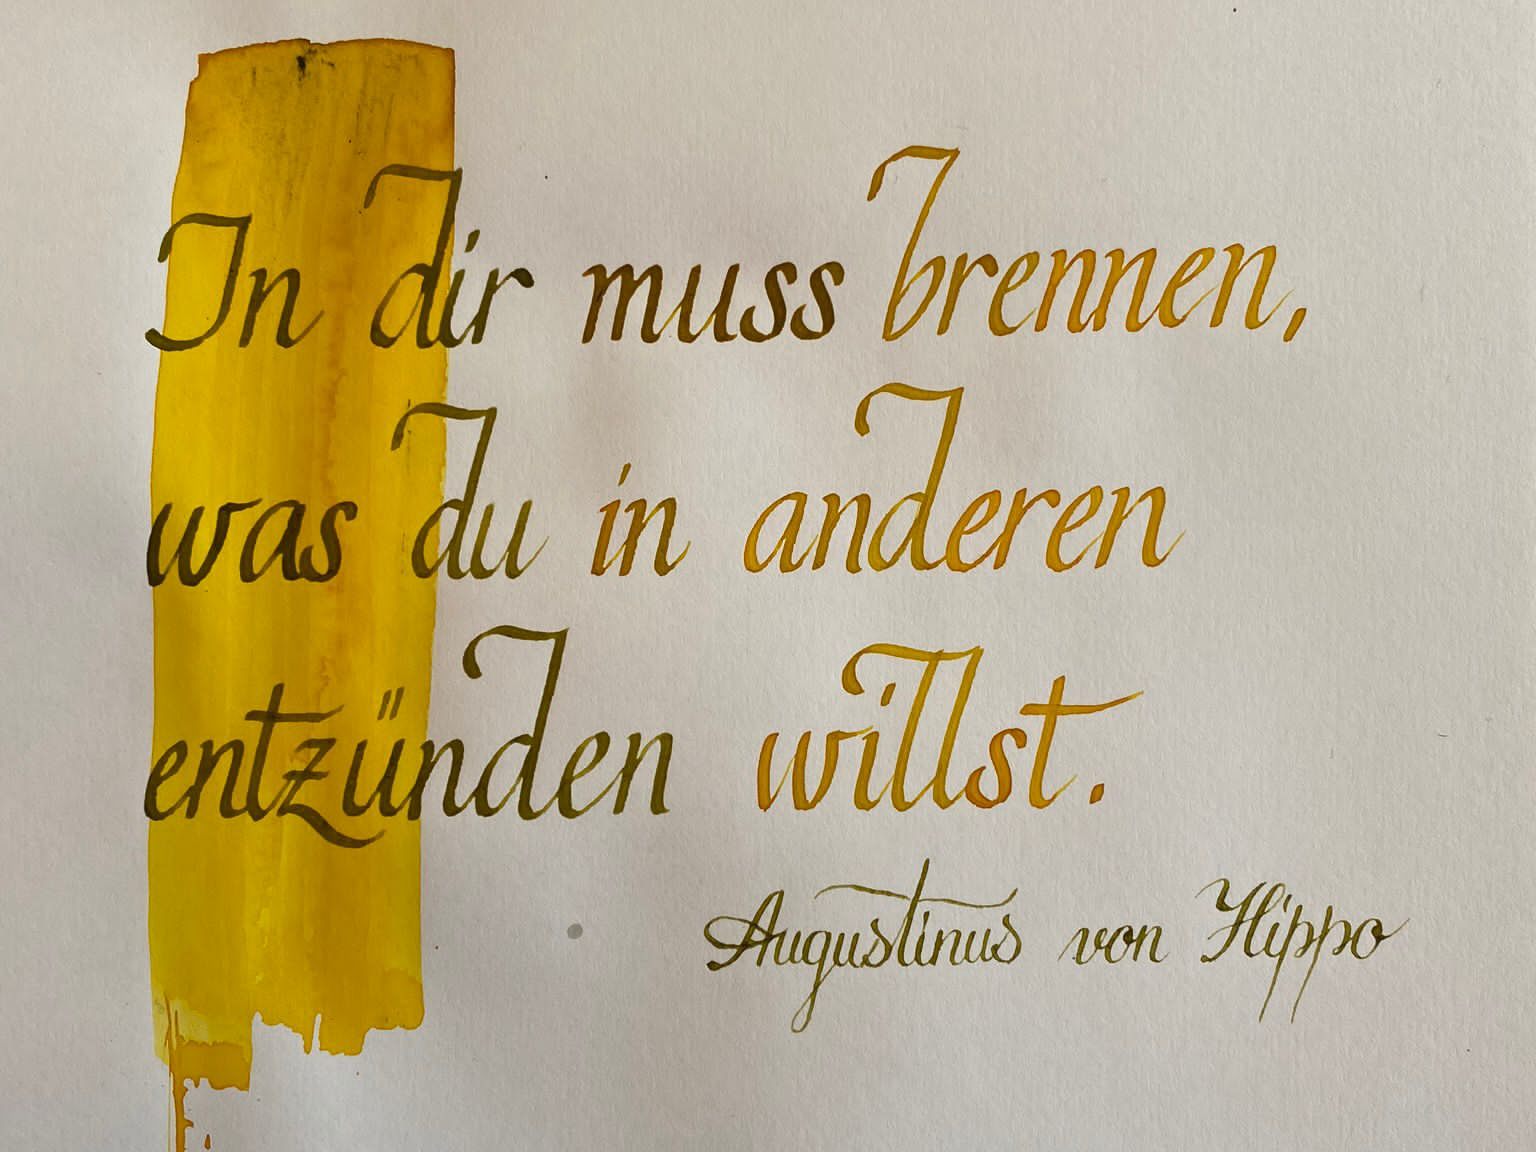 In dir muss brennen,
was du in anderen
entzünden willst.
Augustinus von Hippo